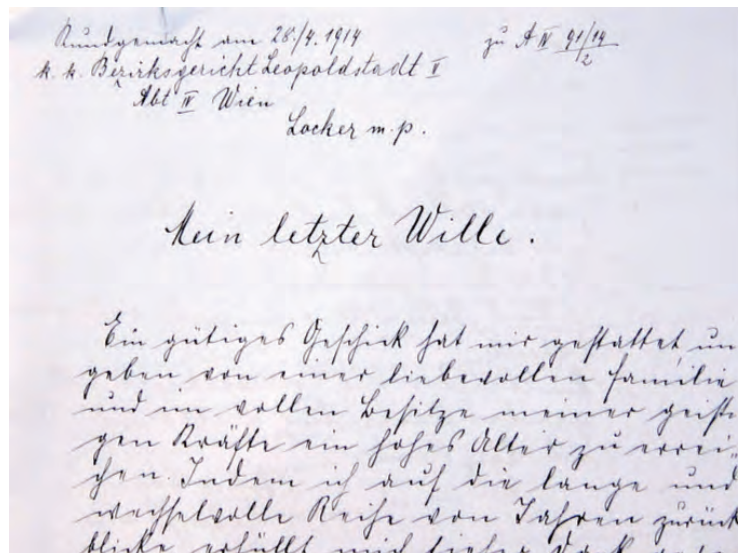 Kundgemacht am 28./4. 1914
zu A IV 91/14
2
k. k. Bezirksgericht Leopoldstadt I
Abt IV Wien
Locker m. p.
Mein letzter Wille.
Ein gütiges Geschick hat mir gestattet, um
geben von einer liebevollen Familie
und im vollen Besitze meiner geisti
gen Kräfte ein hohes Alter zu errei-
chen. Indem ich auf die lange und
wechselvolle Reihe von Jahren zurück
blicke erfüllt mich tiefer Dank